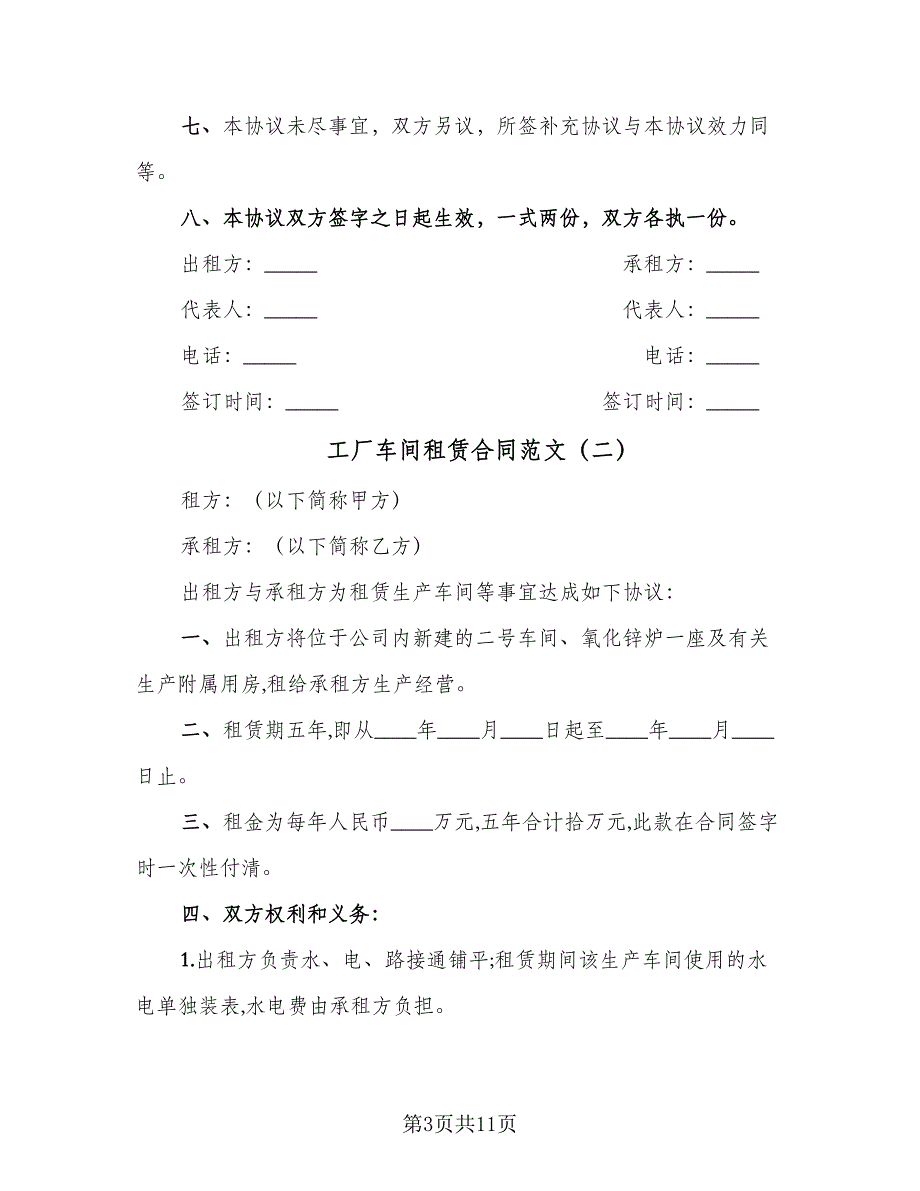 七、本协议未尽事宜，双方另议，所签补充协议与本协议效力同
等。
八、本协议双方签字之日起生效，一式两份，双方各执一份。
出租方：_____ 承租方：_____
代表人：_____ 代表人：_____
电话：_____ 电话：_____
签订时间：_____ 签订时间：_____
工厂车间租赁合同范文（二）
租方：（以下简称甲方）
承租方：（以下简称乙方）
出租方与承租方为租赁生产车间等事宜达成如下协议：
一、出租方将位于公司内新建的二号车间、氧化锌炉一座及有关
生产附属用房,租给承租方生产经营。
二、租赁期五年,即从____年____月____日起至____年____月____
日止。
三、租金为每年人民币____万元,五年合计拾万元,此款在合同签字
时一次性付清。
四、双方权利和义务：
1.出租方负责水、电、路接通铺平;租赁期间该生产车间使用的水
电单独装表,水电费由承租方负担。
第3页共11页